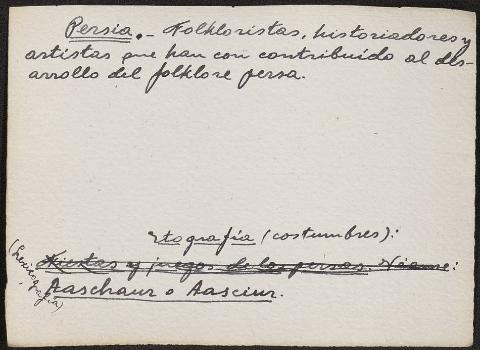 Persia.- Folkloristas, historiadores y
artistas que han con contribuido al des-
arrollo del folklore persa.
Etografía (costumbres):
(Lexicografía)
Fiestas y juegos de los persas. Véanse:
Aaschaur o Aasciur.